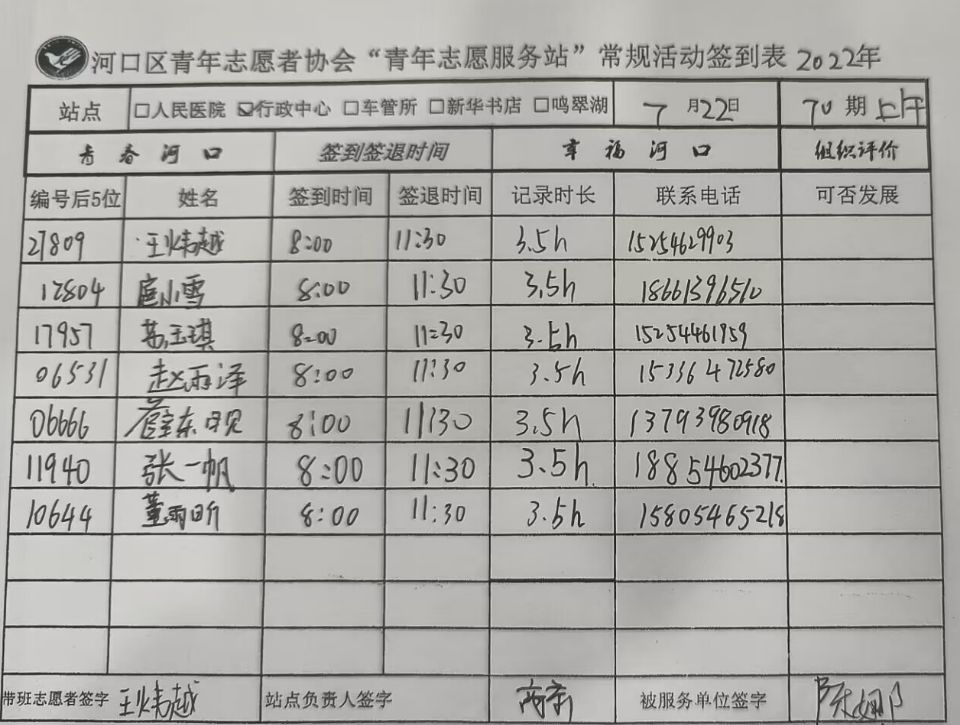 河口区青年志愿者协会“青年志愿服务站”常规活动签到表 2022年
站点 □人民医院 ☑行政中心 □车管所 □新华书店 □鸣翠湖 7月22日 70期 上午
青春河口 签到签退时间 幸福河口 组织评价
编号后5位 姓名 签到时间 签退时间 记录时长 联系电话 可否发展
27809 王炜越 8:00 11:30 3.5h 15254629903
12804 扈小雪 8:00 11:30 3.5h 18661396510
17957 苏玉琪 8:00 11:30 3.5h 15254461959
06531 赵雨泽 8:00 11:30 3.5h 15336472580
06666 8:00 11:30 3.5h 13793980918
11940 张一帆 8:00 11:30 3.5h 18854602377
10644 董雨昕 8:00 11:30 3.5h 15805465218
带班志愿者签字 王炜越 站点负责人签字 被服务单位签字